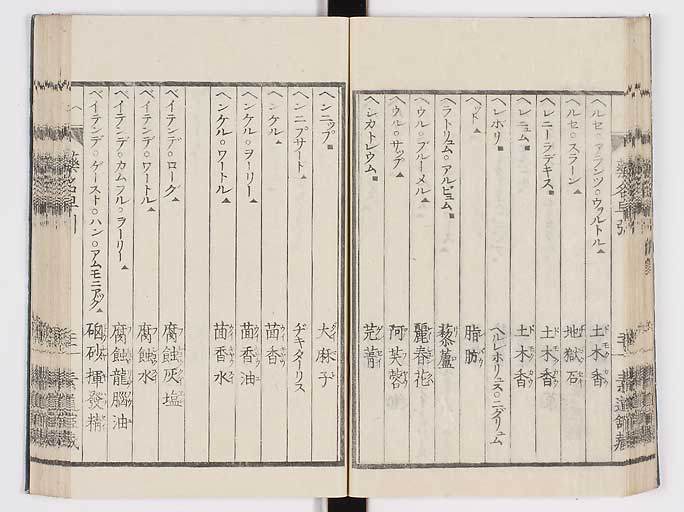 ヘルセ○フランツ○ウヲルトル▲ 土木香
ヘルセ○スラーン▲ 地獄石
ヘレニーラデキス■ 土木香
ヘレニュム■ 土木香
ヘレボリ■ ヘルレホリュス○ニグリュム
ヘット▲ 脂肪
ヘラトリュム○アルビュム■ 藜蘆
ヘウル○ブルーメル▲ 麗春花
ヘウル○サップ▲ 阿芙蓉
ヘシカトレウム■ 芫菁
ヘンニップ■ 大麻子
ヘンニプサート▲ ヂキターリス
ヘンケル▲ 茴香
ヘンケル○ヲーリー▲ 茴香油
ヘンケル○ワートル▲ 茴香水
ベイテンデ○ローグ▲ 腐蝕灰塩
ベイテンデ○ワートル▲ 腐蝕水
ベイテンデ○カムフル○ヲーリー▲ 腐蝕龍脳油
ベイテンデ○ゲースト○ハン○アムモニアック▲ 硇砂揮發精